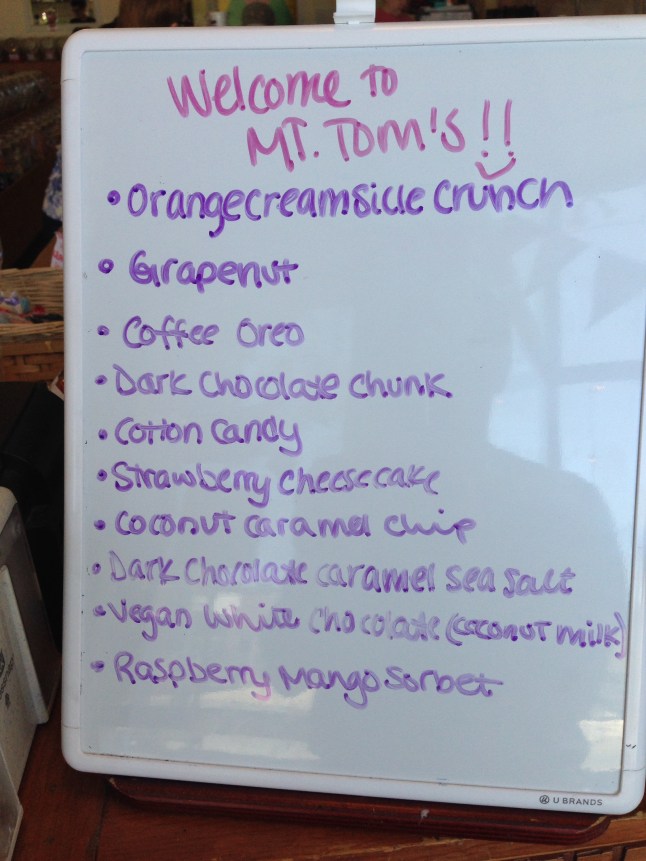 Welcome to
MT. TOM'S!!
• Orangecreamsicle crunch
• Grapenut
• Coffee Oreo
• Dark Chocolate Chunk
• Cotton Candy
• Strawberry Cheesecake
• Coconut Caramel Chip
• Dark Chocolate caramel sea salt
• Vegan White Chocolate (coconut milk)
• Raspberry Mango Sorbet
U BRANDS